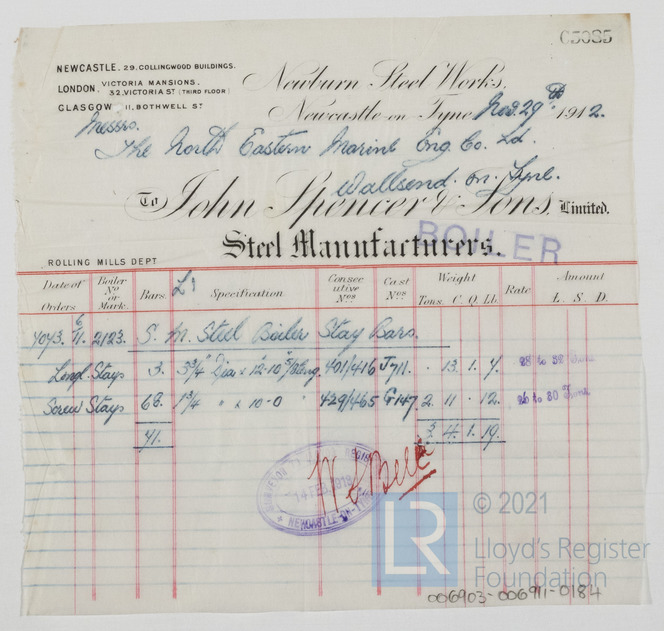 C5085
NEWCASTLE. 29. COLLINGWOOD BUILDINGS.
LONDON. VICTORIA MANSIONS. 32, VICTORIA ST (THIRD FLOOR)
GLASGOW 11, BOTHWELL ST
Newburn Steel Works,
Newcastle on Tyne Nov. 29th 1912.
Messrs.
The North Eastern Marine Eng. Co. Ld.
Wallsend. on. Tyne.
To John Spencer & Sons, Limited.
Steel Manufacturers.
BOILER
ROLLING MILLS DEPT
Date of Orders Boiler No or Mark. Bars. Specification Consecutive Nos Cast Nos Weight Tons. C. Q. Lb. Rate Amount L. S. D.
4043. 6/11. 2123. S. M. Steel Boiler Stay Bars.
Longl. Stays 3. 3 3/4" Dia x 12-10 5/8 long. 401/416 J711. . 13. 1. 7. 28 to 32 Tons.
Screw Stays 68. 1 3/4 " x 10-0 " 429/465 G147. 2. 11 . 12. 26 to 30 Tons.
71. 3. 4. 1. 19.
14 FEB 1913
NEWCASTLE-ON-TYNE
© 2021
LR
Lloyd's Register
Foundation
006903-006911-0184